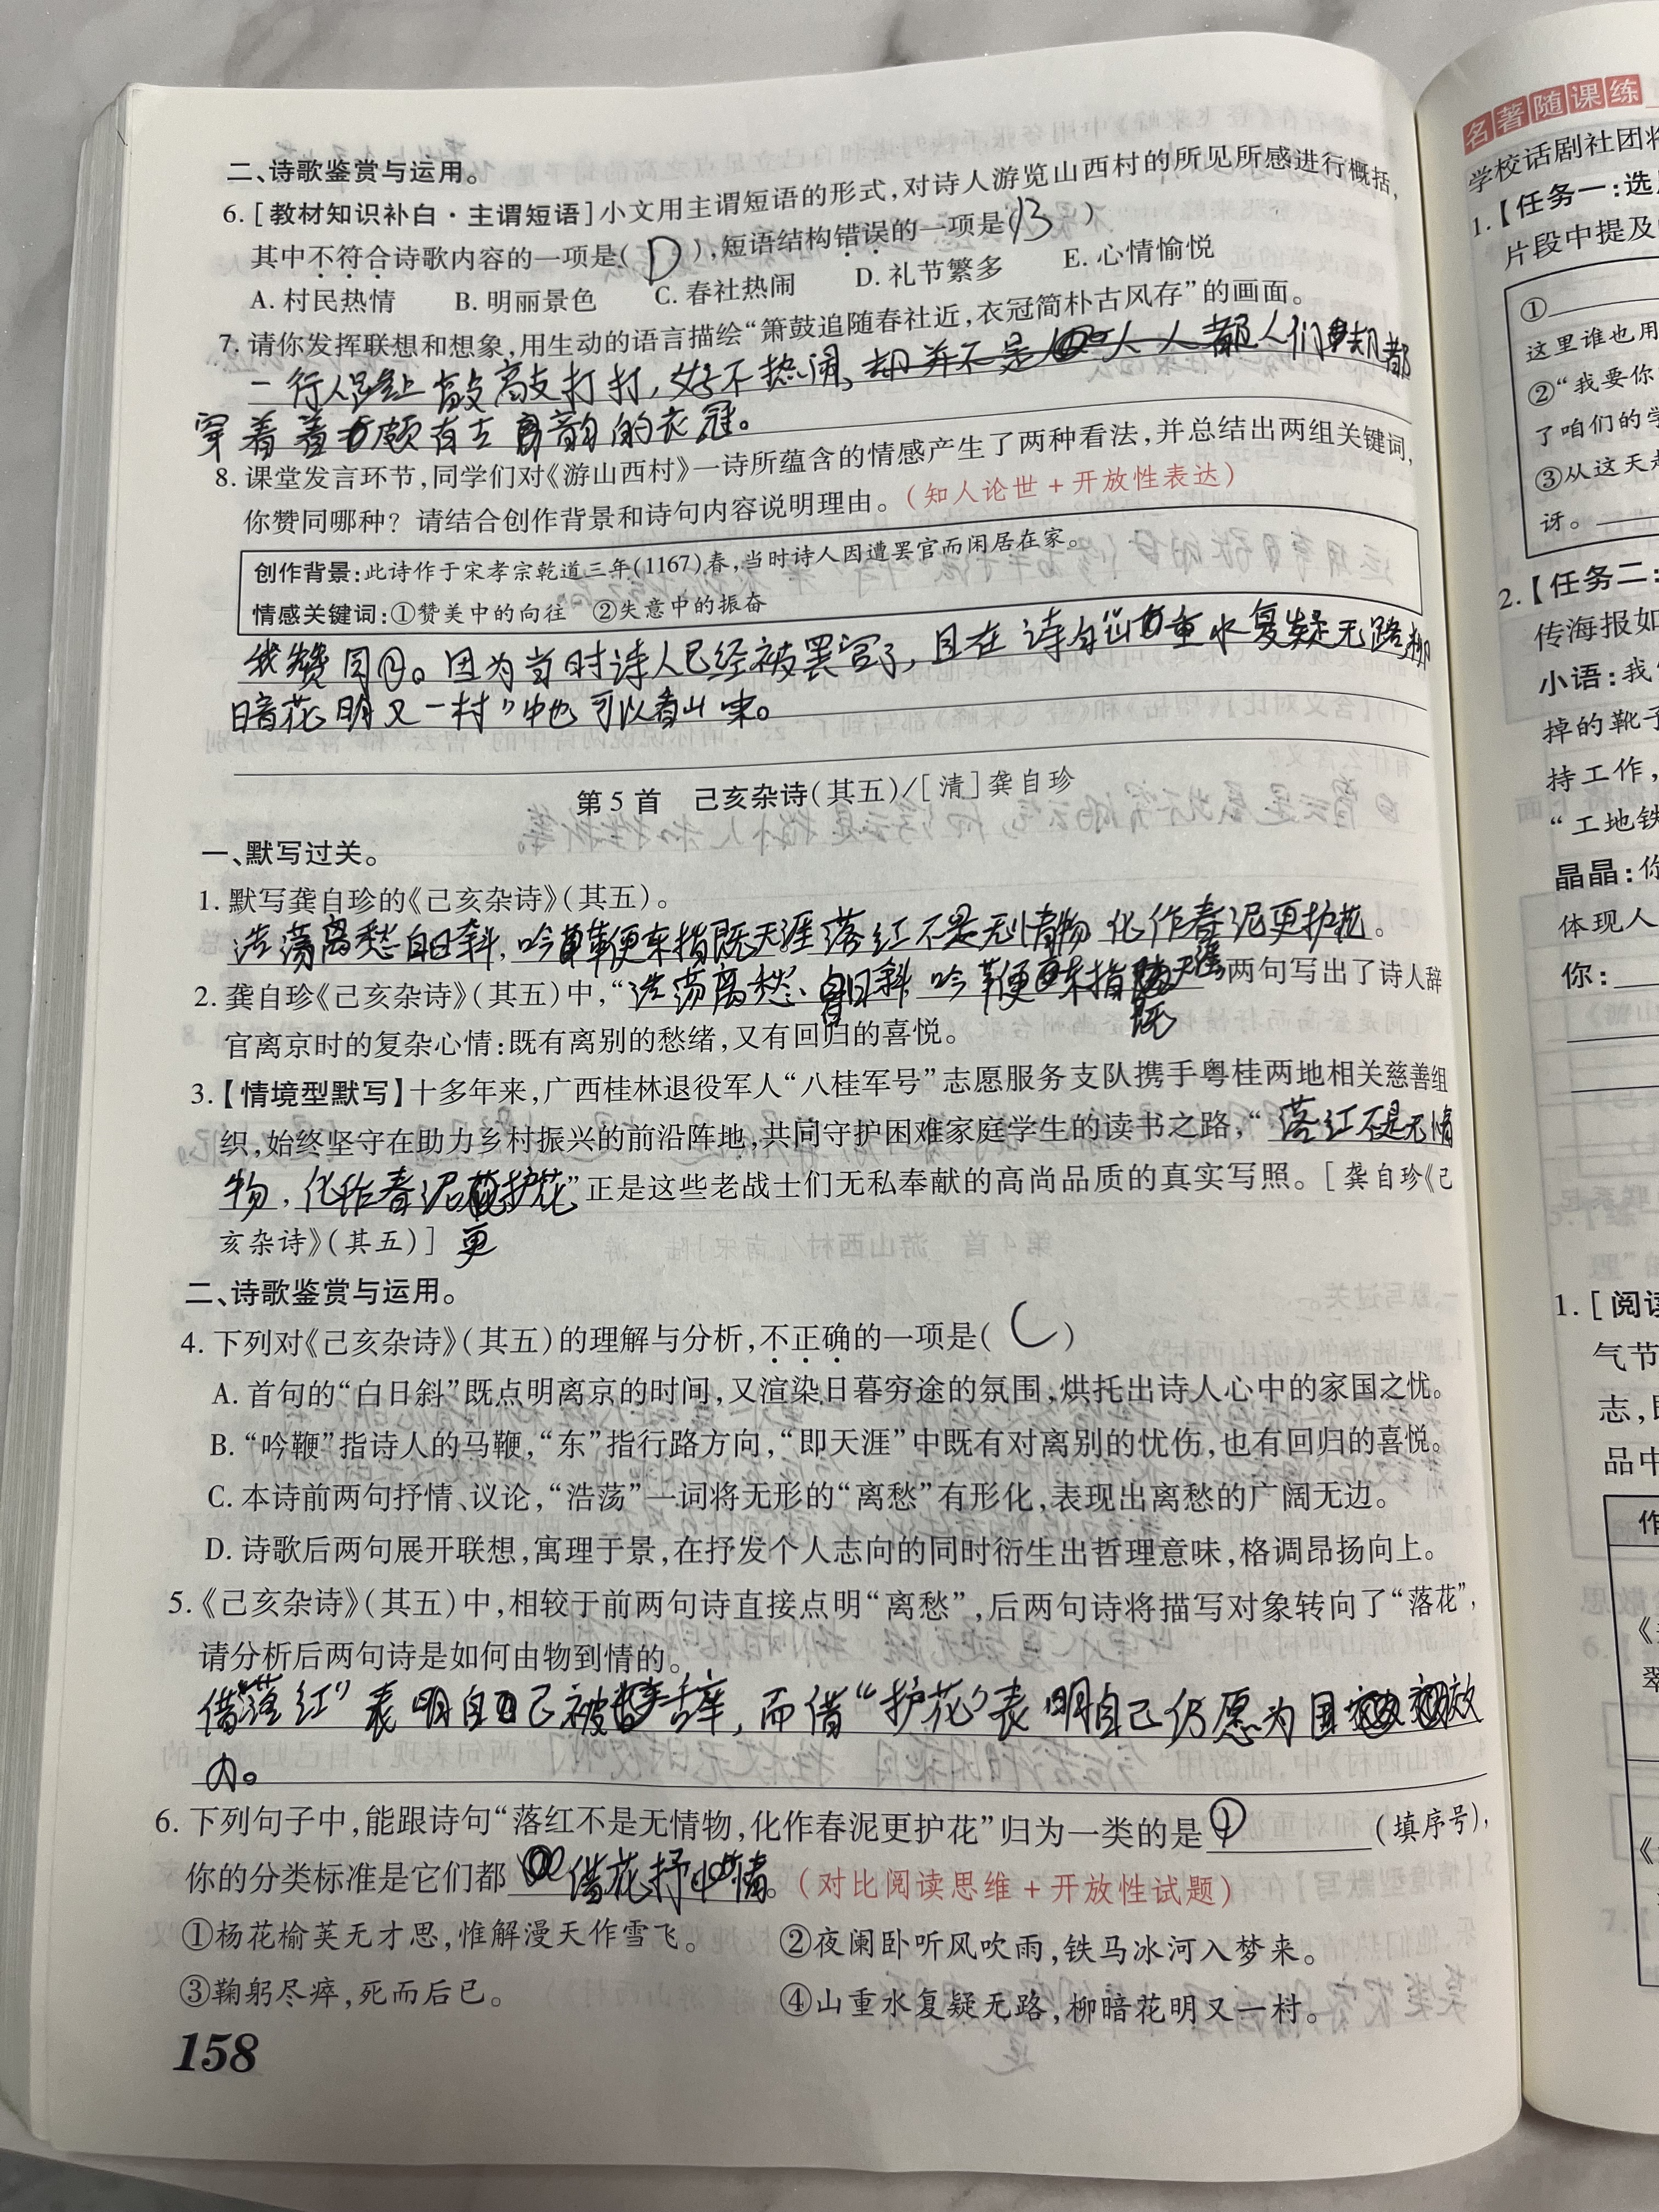 二、诗歌鉴赏与运用。
6. [教材知识补白·主谓短语]小文用主谓短语的形式,对诗人游览山西村的所见所感进行概括,
其中不符合诗歌内容的一项是( D ),短语结构错误的一项是( B )
A. 村民热情 B. 明丽景色 C. 春社热闹 D. 礼节繁多 E. 心情愉悦
7. 请你发挥联想和想象,用生动的语言描绘“箫鼓追随春社近,衣冠简朴古风存”的画面。
一行人 敲敲打打,好不热闹, 却并不是 人人都 人们却都
穿着着颇有古韵的衣冠。
8. 课堂发言环节,同学们对《游山西村》一诗所蕴含的情感产生了两种看法,并总结出两组关键词,
你赞同哪种？请结合创作背景和诗句内容说明理由。(知人论世+开放性表达)
创作背景:此诗作于宋孝宗乾道三年(1167)春,当时诗人因遭罢官而闲居在家。
情感关键词:①赞美中的向往 ②失意中的振奋
我赞同②。因为当时诗人已经被罢官了,且在诗句“山重水复疑无路,柳
暗花明又一村”中也可以看出来。
第5首 己亥杂诗(其五)/[清]龚自珍
一、默写过关。
1. 默写龚自珍的《己亥杂诗》(其五)。
浩荡离愁白日斜,吟鞭东指既天涯 落红不是无情物 化作春泥更护花。
2. 龚自珍《己亥杂诗》(其五)中,“浩荡离愁白日斜,吟鞭东指既天涯”两句写出了诗人辞
官离京时的复杂心情:既有离别的愁绪,又有回归的喜悦。
3.【情境型默写】十多年来,广西桂林退役军人“八桂军号”志愿服务支队携手粤桂两地相关慈善组
织,始终坚守在助力乡村振兴的前沿阵地,共同守护困难家庭学生的读书之路,“落红不是无情
物,化作春泥护花”正是这些老战士们无私奉献的高尚品质的真实写照。[龚自珍《己
亥杂诗》(其五)] 更
二、诗歌鉴赏与运用。
4. 下列对《己亥杂诗》(其五)的理解与分析,不正确的一项是( C )
A. 首句的“白日斜”既点明离京的时间,又渲染日暮穷途的氛围,烘托出诗人心中的家国之忧。
B. “吟鞭”指诗人的马鞭,“东”指行路方向,“即天涯”中既有对离别的忧伤,也有回归的喜悦。
C. 本诗前两句抒情、议论,“浩荡”一词将无形的“离愁”有形化,表现出离愁的广阔无边。
D. 诗歌后两句展开联想,寓理于景,在抒发个人志向的同时衍生出哲理意味,格调昂扬向上。
5.《己亥杂诗》(其五)中,相较于前两句诗直接点明“离愁”,后两句诗将描写对象转向了“落花”,
请分析后两句诗是如何由物到情的。
借“落红”表明自己被辞,而借“护花”表明自己仍愿为国效
力。
6. 下列句子中,能跟诗句“落红不是无情物,化作春泥更护花”归为一类的是①(填序号),
你的分类标准是它们都 借花抒情。(对比阅读思维+开放性试题)
①杨花榆荚无才思,惟解漫天作雪飞。 ②夜阑卧听风吹雨,铁马冰河入梦来。
③鞠躬尽瘁,死而后已。 ④山重水复疑无路,柳暗花明又一村。
158
名著随课练
学校话剧社团将
1.【任务一:选
片段中提及
①
这里谁也用
②“我要你
了咱们的学
③从这天起
讶。
2.【任务二:
传海报如
小语:我
掉的靴子
持工作,
“工地铁
晶晶:你
体现人
你:
1. [阅读
气节
志,
品中
作